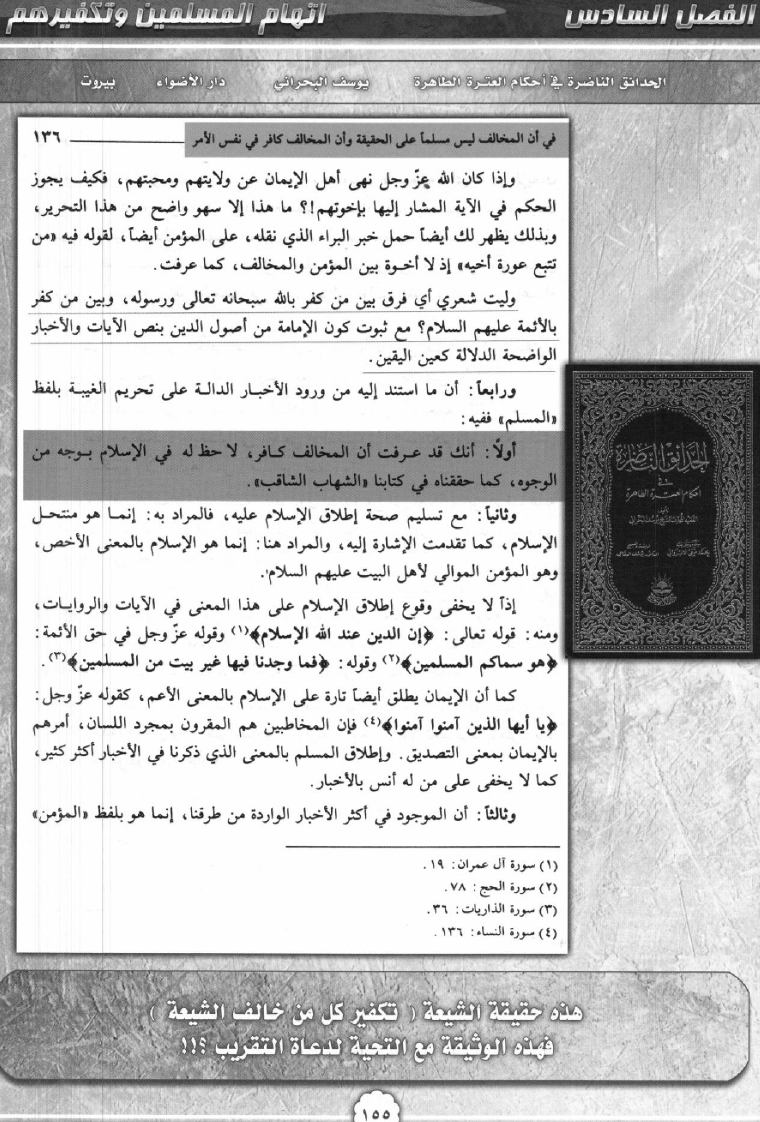 الفصل السادس
اتهام المسلمين وتكفيرهم
الحدائق الناضرة في أحكام العترة الطاهرة يوسف البحراني دار الأضواء بيروت
في أن المخالف ليس مسلماً على الحقيقة وأن المخالف كافر في نفس الأمر ١٣٦
وإذا كان الله عزّ وجل نهى أهل الإيمان عن ولايتهم ومحبتهم، فكيف يجوز
الحكم في الآية المشار إليها بإخوتهم!؟ ما هذا إلا سهو واضح من هذا التحرير،
وبذلك يظهر لك أيضاً حمل خبر البراء الذي نقله، على المؤمن أيضاً، لقوله فيه «من
تتبع عورة أخيه» إذ لا أخوة بين المؤمن والمخالف، كما عرفت.
وليت شعري أي فرق بين من كفر بالله سبحانه تعالى ورسوله، وبين من كفر
بالأئمة عليهم السلام؟ مع ثبوت كون الإمامة من أصول الدين بنص الآيات والأخبار
الواضحة الدلالة كعين اليقين.
ورابعاً: أن ما استند إليه من ورود الأخبار الدالة على تحريم الغيبة بلفظ
«المسلم» ففيه:
أولاً: أنك قد عرفت أن المخالف كافر، لا حظ له في الإسلام بوجه من
الوجوه، كما حققناه في كتابنا «الشهاب الثاقب».
وثانياً: مع تسليم صحة إطلاق الإسلام عليه، فالمراد به: إنما هو منتحل
الإسلام، كما تقدمت الإشارة إليه، والمراد هنا: إنما هو الإسلام بالمعنى الأخص،
وهو المؤمن الموالي لأهل البيت عليهم السلام.
إذاً لا يخفى وقوع إطلاق الإسلام على هذا المعنى في الآيات والروايات،
ومنه: قوله تعالى: ﴿إن الدين عند الله الإسلام﴾(١) وقوله عزّ وجل في حق الأئمة:
﴿هو سماكم المسلمين﴾(٢) وقوله: ﴿فما وجدنا فيها غير بيت من المسلمين﴾(٣).
كما أن الإيمان يطلق أيضاً تارة على الإسلام بالمعنى الأعم، كقوله عزّ وجل:
﴿يا أيها الذين آمنوا آمنوا﴾(٤) فإن المخاطبين هم المقرون بمجرد اللسان، أمرهم
بالإيمان بمعنى التصديق. وإطلاق المسلم بالمعنى الذي ذكرنا في الأخبار أكثر كثير،
كما لا يخفى على من له أنس بالأخبار.
وثالثاً: أن الموجود في أكثر الأخبار الواردة من طرقنا، إنما هو بلفظ «المؤمن»
(١) سورة آل عمران: ١٩.
(٢) سورة الحج: ٧٨.
(٣) سورة الذاريات: ٣٦.
(٤) سورة النساء: ١٣٦.
الحدائق الناضرة
في
أحكام العترة الطاهرة
هذه حقيقة الشيعة ( تكفير كل من خالف الشيعة )
فهذه الوثيقة مع التحية لدعاة التقريب ؟!!
١٥٥